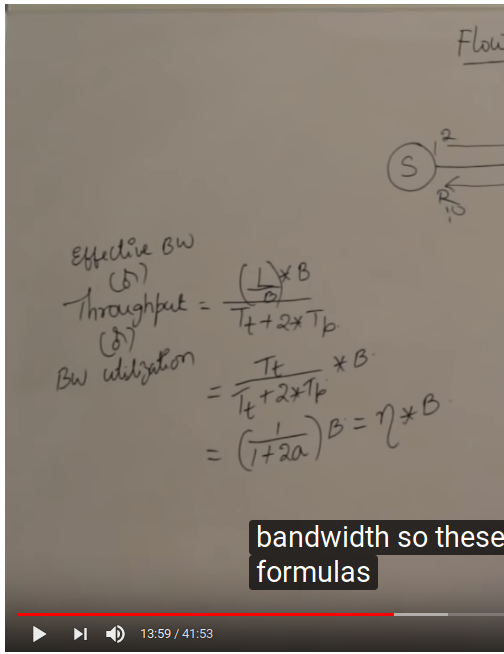 Flow
2
1
S
R
10
Effective BW
(or)
Throughput = (L/B)*B / Tt+2*Tp
(or)
BW utilization
= Tt / Tt+2*Tp * B
= (1/1+2a) B = η*B
bandwidth so these
formulas
13:59 / 41:53